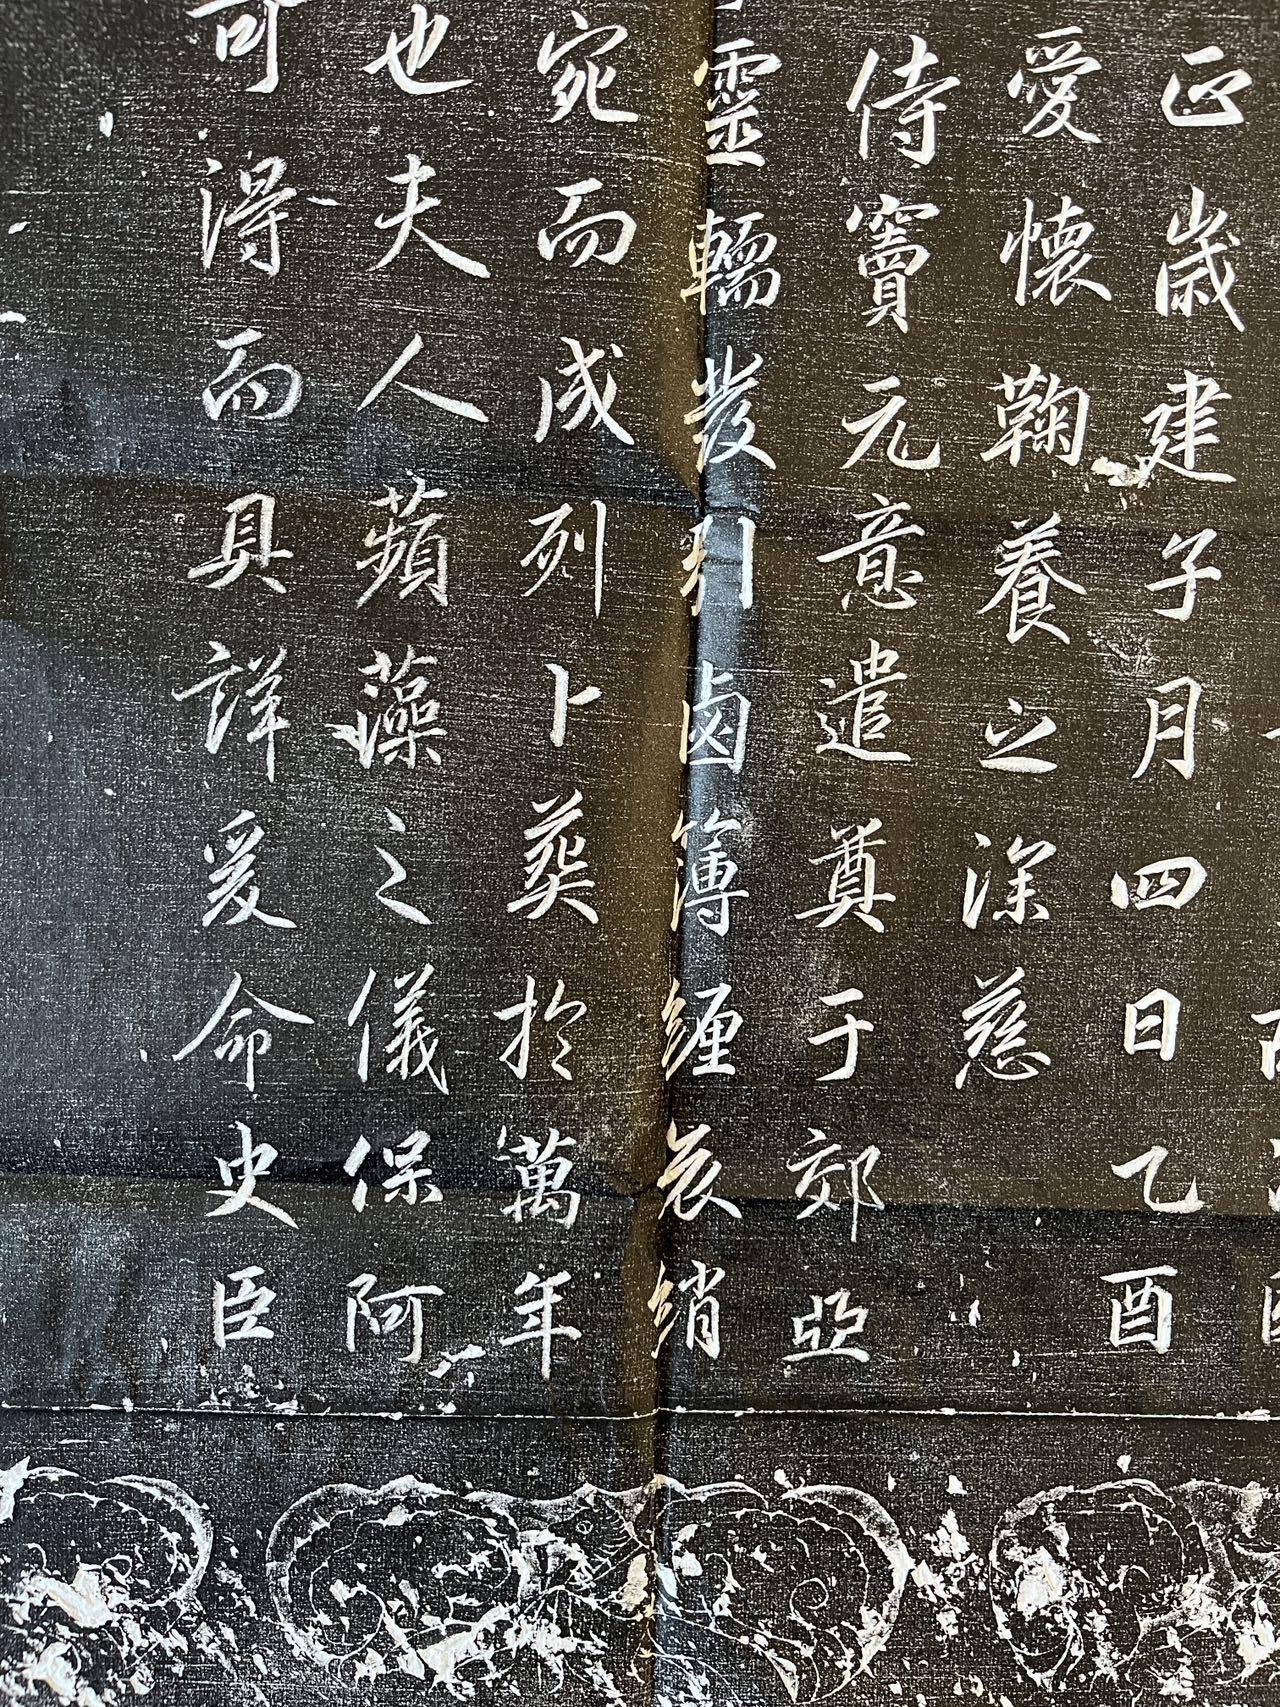 正歲建子月四日乙酉
愛懷鞠養之深慈
侍竇元意遣奠于郊亞
靈轜發引鹵簿纏哀綃
宛而成列卜葬於萬年
也夫人蘋藻之儀保阿
可得而具詳爰命史臣